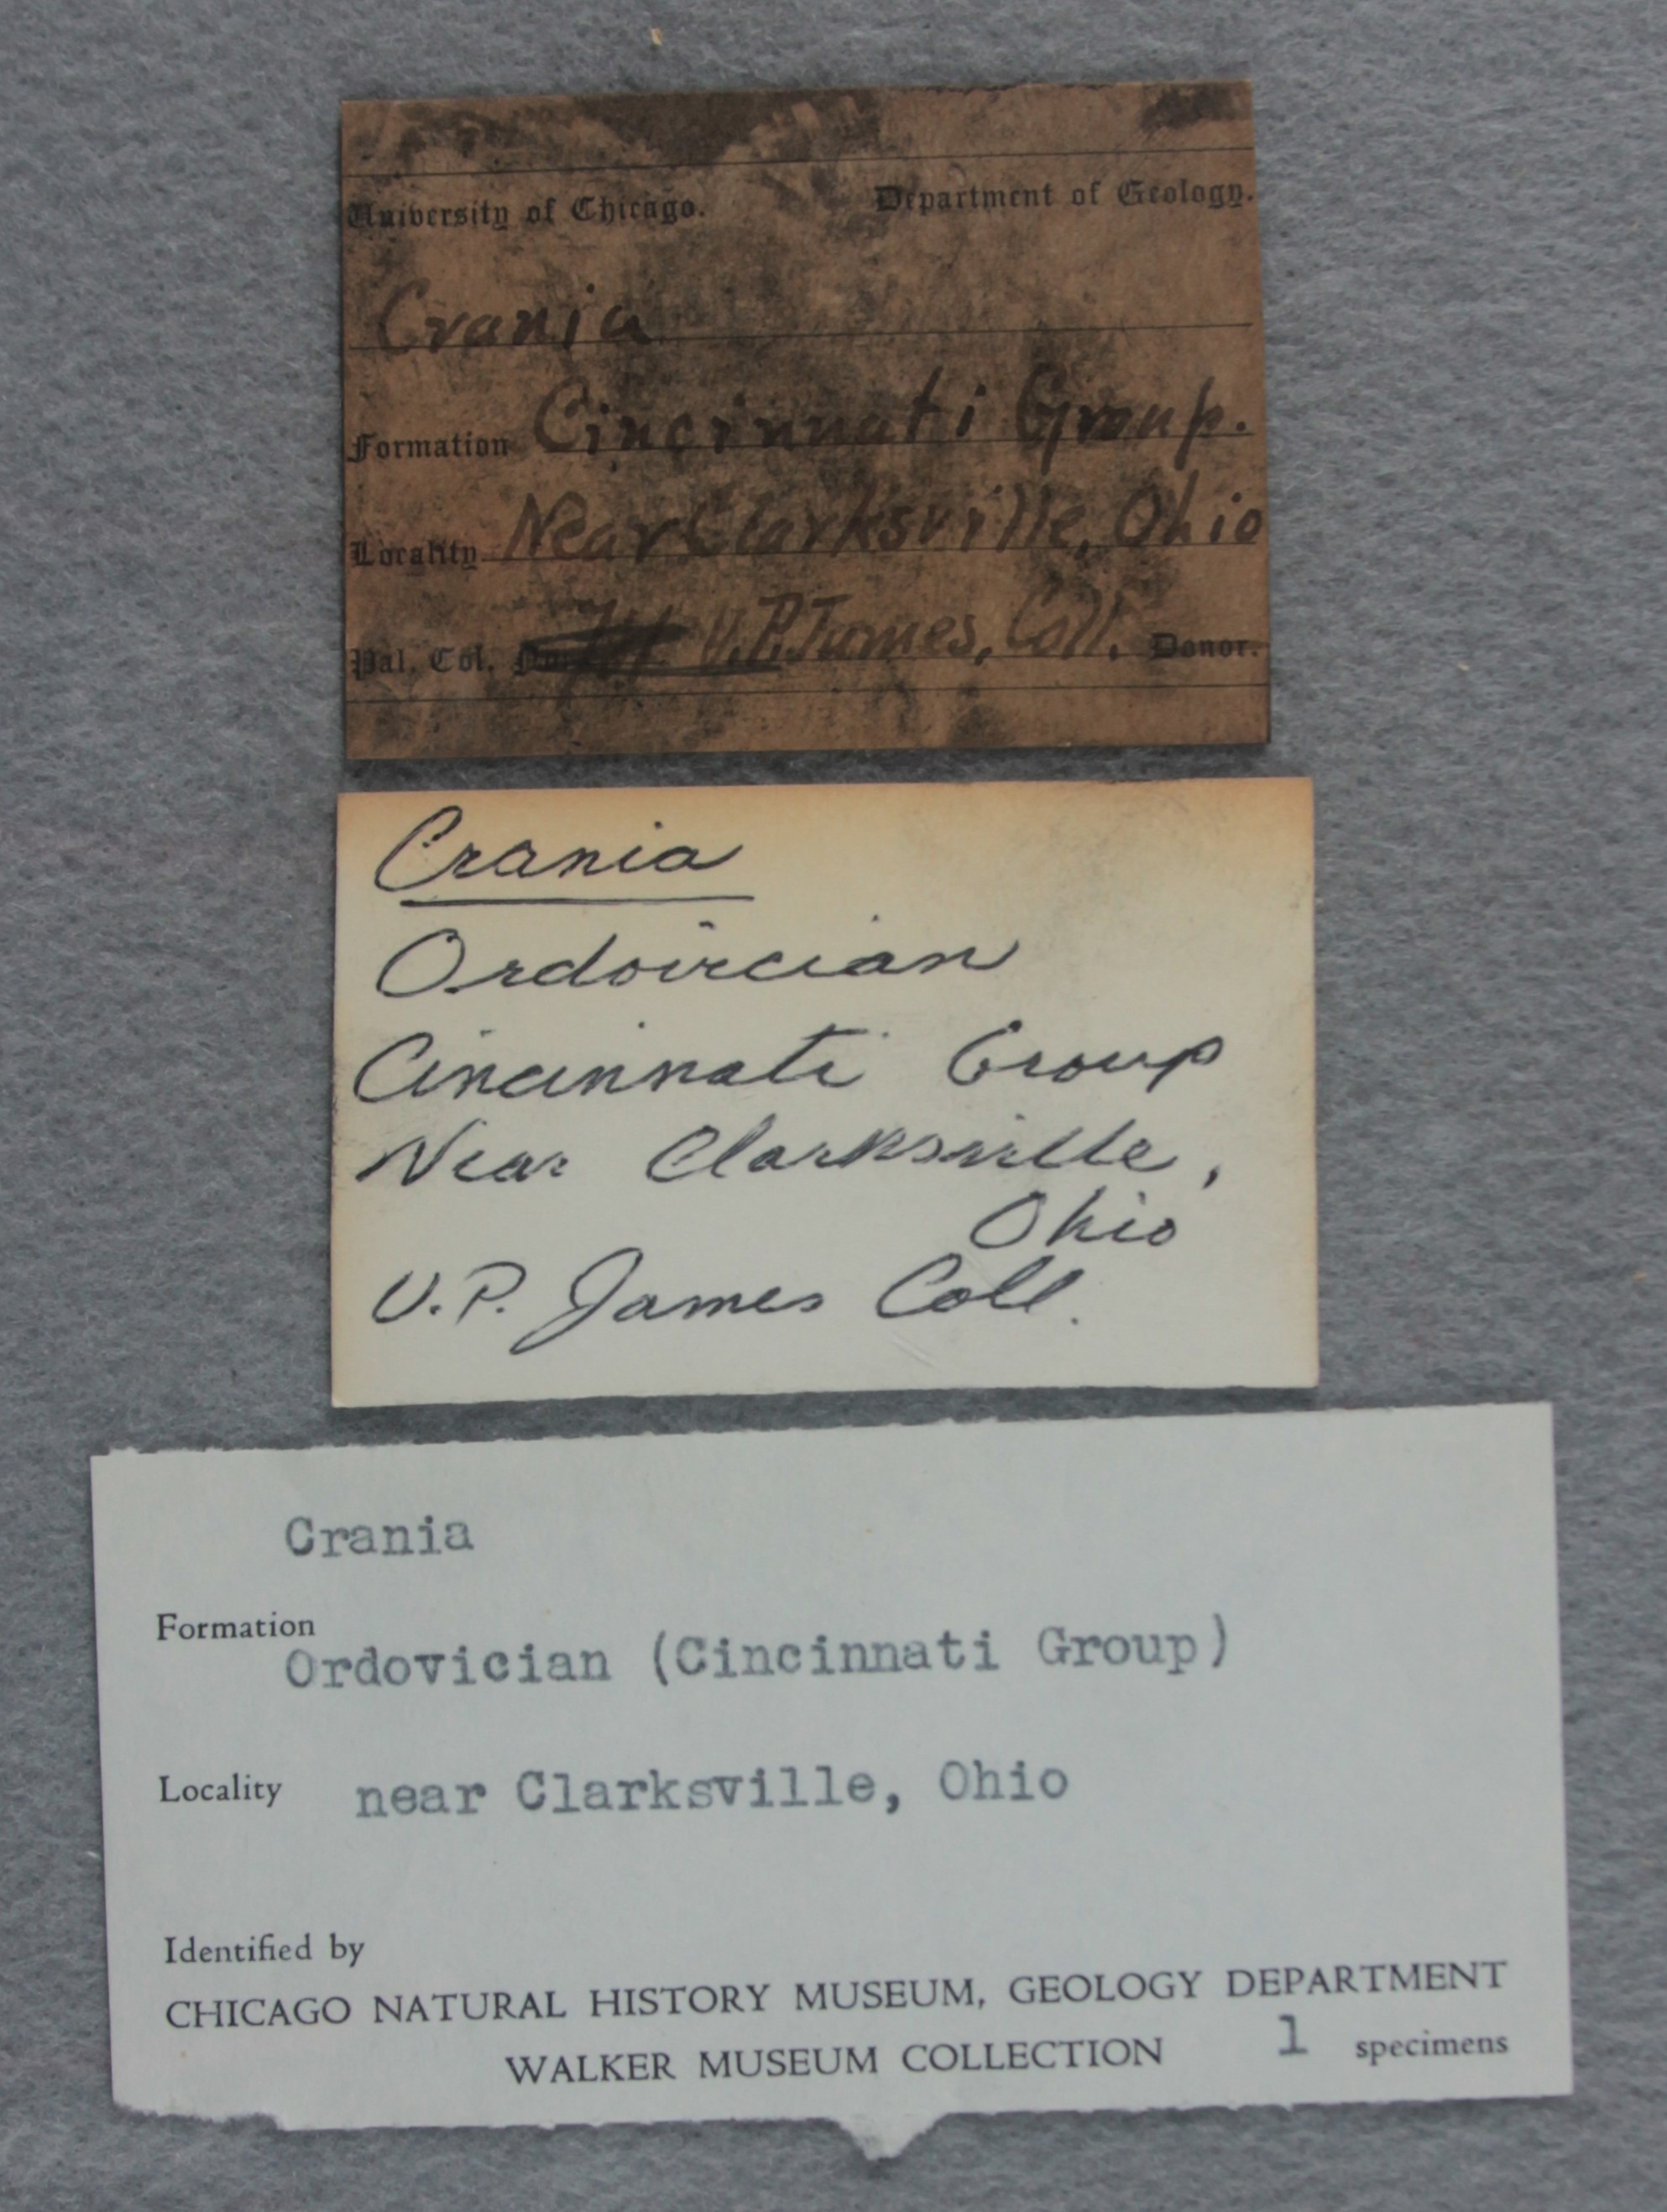 University of Chicago. Department of Geology.
Crania
Formation Cincinnati Group.
Locality Near Clarksville, Ohio
Pal. Col. U.P. James, Coll. Donor.
Crania
Ordovician
Cincinnati Group
Near Clarksville,
Ohio
U.P. James Coll.
Crania
Formation
Ordovician (Cincinnati Group)
Locality near Clarksville, Ohio
Identified by
CHICAGO NATURAL HISTORY MUSEUM, GEOLOGY DEPARTMENT
WALKER MUSEUM COLLECTION 1 specimens